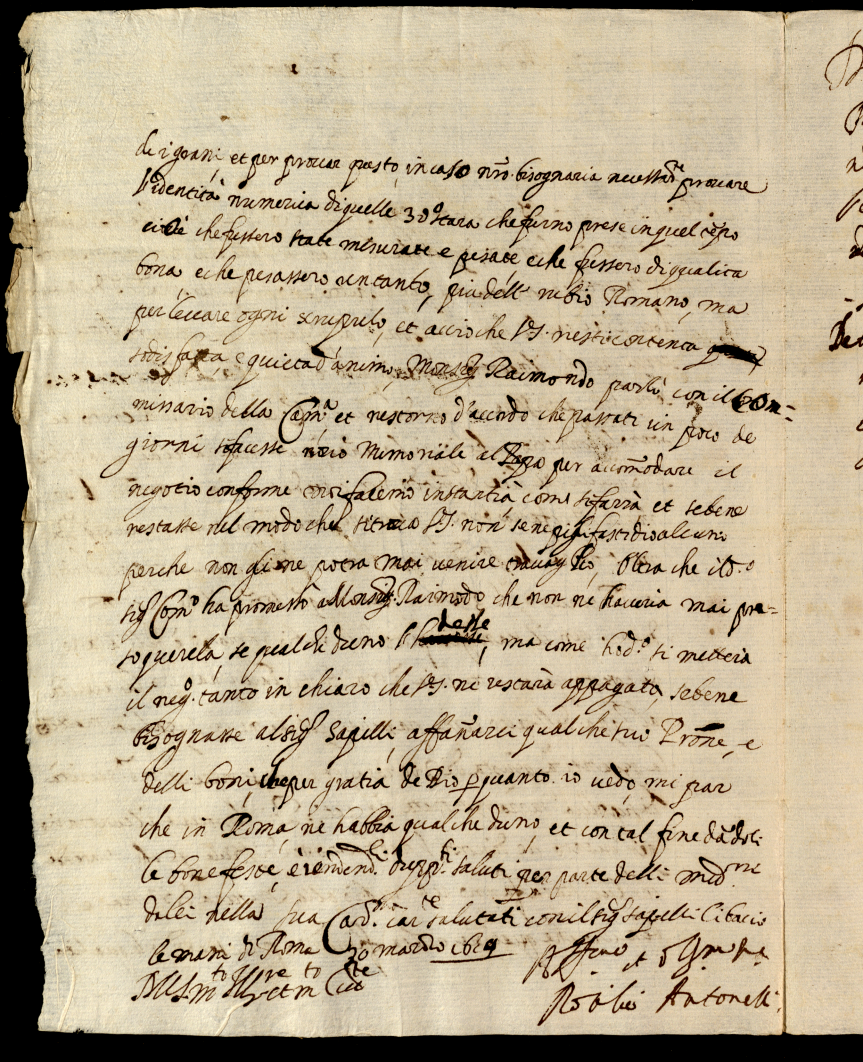 de i grani, et per provar questo, in caso nr̃o bisognaria necess.te provare
l'identità numerica di quelle 300 stara che furno prese in quel tẽpo
cioè che fussero state misurate e pesate, e che fussero di qualità
bona e che pesassero un tanto, più dell' rubio Romano, ma
per levare ogni scrupulo, et acciò che V.S. ne stii contenta
sodisfatta, e quieta d'animo, Mons.r Raimondo parlò con il Com=
missario della Cam.a et restorno d'accordo che passati un poco de
giorni si facesse novo Memoriale al Papa per accomodare il
negotio conforme noi faremo instantia come si farrà et sebene
restasse nel modo che si trova V.S. non se ne pigli fastidio alcuno
perche non gli ne potra mai venire travaglio, Oltra che il d.o
sig.r Com.o ha promesso a Mons.r Raimõdo che non ne haveria mai pre=
so querela, se qualch'uno l'havesse desse, ma come ho d.o si metterà
il neg.o tanto in chiaro che V.S. ne restarà appagata, sebene
bisognasse al sig.r Sapelli, affañarci qualche suo Prõne, e
delli boni, che per gratia de Dio p quanto io vedo, mi par
che in Roma, ne habbia qualche duno, et con tal fine dãdoli
le bone feste, e rendend.li saluti per parte delli med.mi
da lei nella sua salutati con il sig.r Sapelli li bacio
le mani di Roma 30 marzo 1619
Di V.S. m.to Ill.re et m.to
Aff.mo et
Antonelli